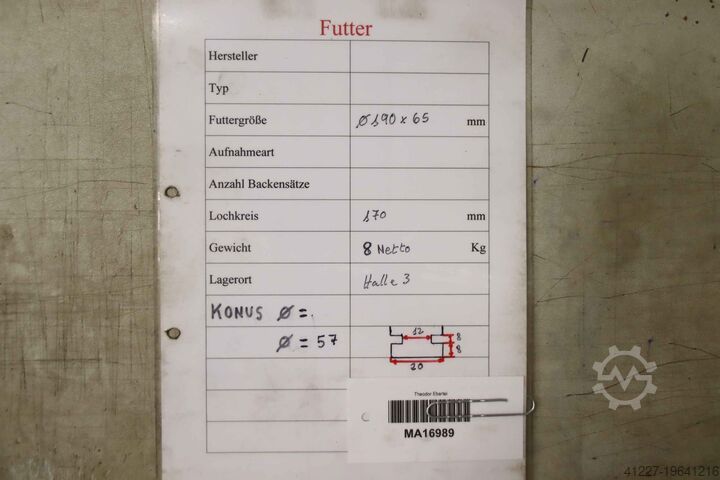 Futter
Hersteller
Typ
Futtergröße ø 190 x 65 mm
Aufnahmeart
Anzahl Backensätze
Lochkreis 170 mm
Gewicht 8 Netto Kg
Lagerort Halle 3
KONUS ø =.
ø = 57
12
8
8
20
Theodor Ebertel
MA16989
41227-19641216